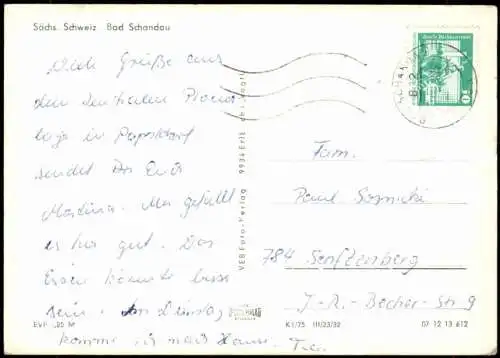 Sächs. Schweiz Bad Schandau
Viele Grüße aus
dem zentralen Pionier
lager in Papstdorf
sendet
Martina. Mir gefällt
es hier gut. Das
Essen könnte besser
sein. Am Dienstag
komme ich nach Hause.
EVP M
VEB Foto-Verlag 9934 Erlbach i. Vogtl.
Fam.
Paul
784 Senftenberg
J.-R.-Becher-Str 9
K1/75 III/23/32 07 12 13 612